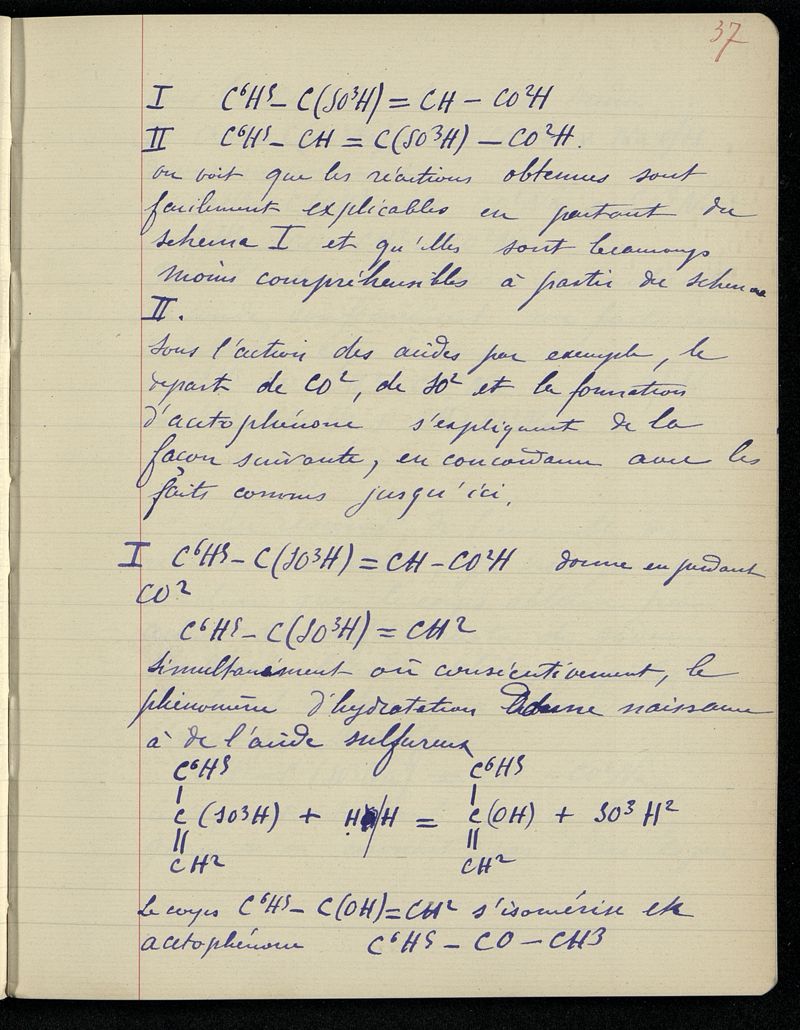 37
I C⁶H⁵ – C(SO³H) = CH – CO²H
II C⁶H⁵ – CH = C(SO³H) – CO²H.
on voit que les réactions obtenues sont
facilement explicables en partant du
schema I et qu'elles sont beaucoup
moins compréhensibles à partir du schema
II.
Sous l'action des acides par exemple, le
depart de CO², de SO² et la formation
d'acetophénone s'expliquent de la
façon suivante, en concordance avec les
faits connus jusqu'ici.
I C⁶H⁵ – C(SO³H) = CH – CO²H donne en perdant
CO²
C⁶H⁵ – C(SO³H) = CH²
Simultanément où consécutivement, le
phénomène d'hydratation donne naissance
à de l'acide sulfureux
C⁶H⁵ C⁶H⁵
| |
C (SO³H) + H/H = C(OH) + SO³H²
|| ||
CH² CH²
Le corps C⁶H⁵ – C(OH) = CH² s'isomérise en
acetophénone C⁶H⁵ – CO – CH3